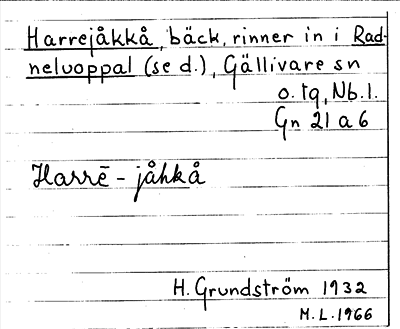 Harrejåkkå, bäck, rinner in i Rad-
neluoppal (se d.), Gällivare sn
o. tg, Nb. l.
Gn 21 a 6
Harrē - jåhkå
H. Grundström 1932
M. L. 1966